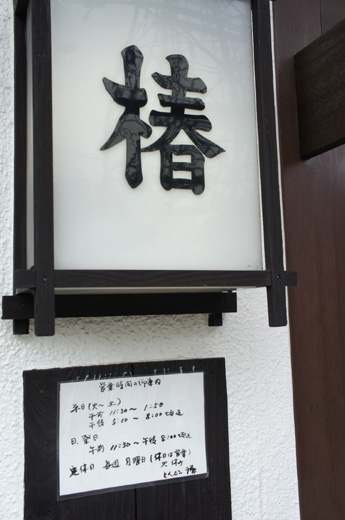 椿
営業時間のご案内
平日(火〜土)
午前 11:30 〜 1:50
午後 5:00 〜 8:00迄
日曜日
午前 11:30 〜 午後 8:00迄
定休日 毎週 月曜日(休日は営業)